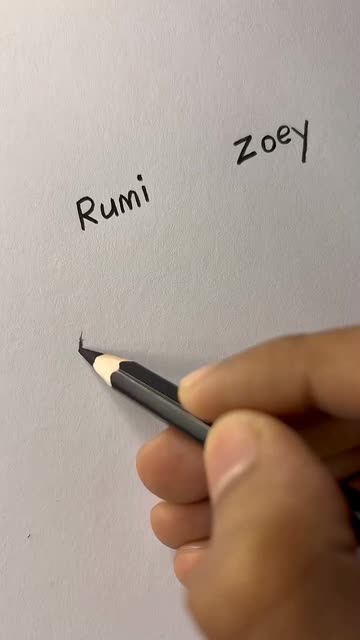 Rumi
Zoey